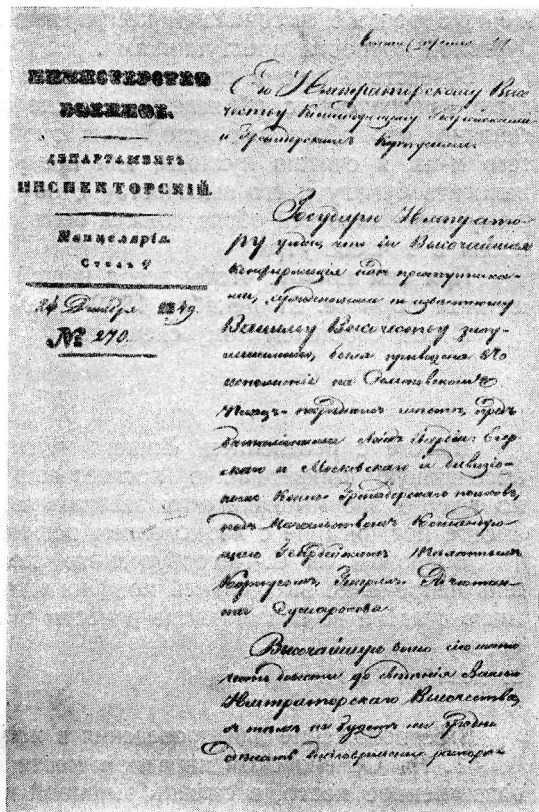 МИНИСТЕРСТВО
ВОЕННОЕ.
ДЕПАРТАМЕНТЪ
ИНСПЕКТОРСКІЙ.
Канцелярія.
Столъ
24 Декабря 1849.
№ 270.
Его Императорскому Высо-
честву Командующему Гвардейскимъ
и Гренадерскимъ Корпусами.
Государю Императо-
ру угодно, чтобы Высочайшая
конфирмація надъ преступника-
ми, по извѣстному
Вашему Высочеству злоу-
мышленію, была приведена въ
исполненіе на Семеновскомъ
Плацъ-парадномъ мѣстѣ, предъ
баталіонами Лейбъ-Гвардіи: Егер-
скаго и Московскаго и дивизіо-
номъ Конно-Гренадерскаго полковъ,
подъ Начальствомъ Командую-
щаго Гвардейскимъ Пѣхотнымъ
Корпусомъ, Генералъ-Лейтенан-
та Сумарокова.
Высочайшую волю сію имѣю
честь довести до свѣдѣнія Вашего
Императорскаго Высочества,
не будетъ ли угодно
сдѣлать распоря-